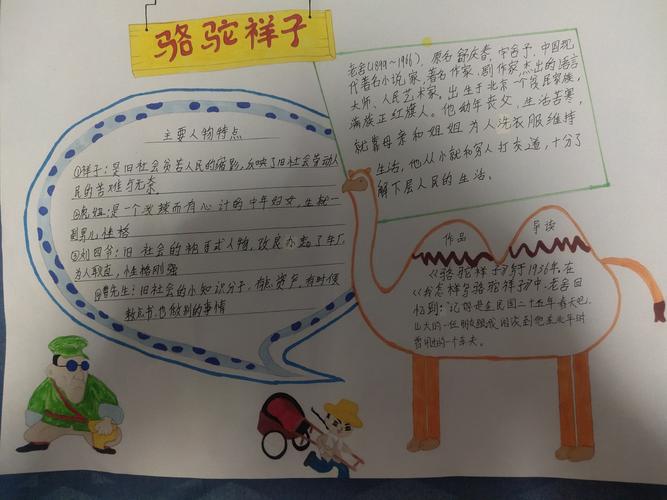 骆驼祥子
老舍(1899~1966), 原名舒庆春, 字舍予, 中国现
代著名小说家, 著名作家, 剧作家, 杰出的语言
大师、人民艺术家, 出生于北京一个贫民家庭,
满族正红旗人。他幼年丧父, 生活苦寒,
就靠母亲和姐姐为人洗衣服维持
生活, 他从小就和穷人打交道, 十分了
解下层人民的生活。
主要人物特点
①祥子: 是旧社会劳苦人民的缩影, 反映了旧社会劳动人
民的苦难与无奈
②虎妞: 是一个泼辣而有心计的中年妇女, 生就一
副男儿性格
③刘四爷: 旧社会的袍哥式人物, 改良办起了车厂,
为人耿直, 性格刚强
④曹先生: 旧社会的小知识分子, 有点资产, 有时候
教点书, 也做别的事情
作品 导读
《骆驼祥子》写于1936年, 在
《我怎样写骆驼祥子》中, 老舍回
忆到: "记得是在民国二十五年春天吧,
山大的一位朋友跟我闲谈到他在北平时
曾用过的一个车夫。